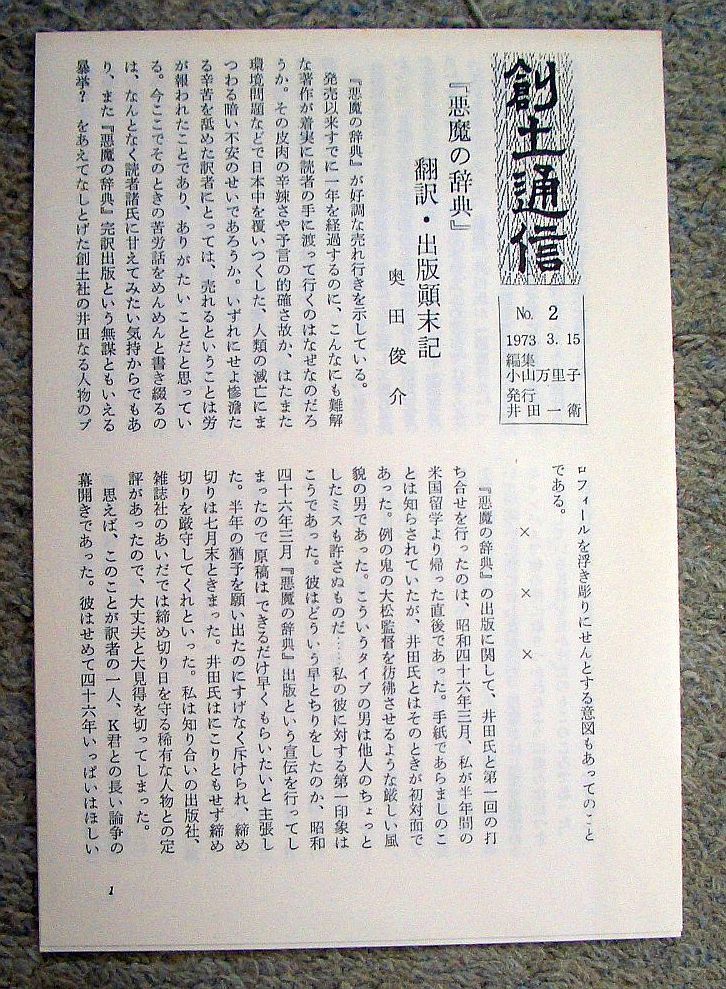 創土通信
No. 2
1973 3. 15
編集
小山万里子
発行
井田一衛
『悪魔の辞典』
翻訳・出版顚末記
奥田俊介
『悪魔の辞典』が好調な売れ行きを示している。
発売以来すでに一年を経過するのに、こんなにも難解
な著作が着実に読者の手に渡って行くのはなぜなのだろ
うか。その皮肉の辛辣さや予言の的確さ故か、はたまた
環境問題などで日本中を覆いつくした、人類の滅亡にま
つわる暗い不安のせいであろうか。いずれにせよ惨澹た
る辛苦を舐めた訳者にとっては、売れるということは労
が報われたことであり、ありがたいことだと思ってい
る。今ここでそのときの苦労話をめんめんと書き綴るの
は、なんとなく読者諸氏に甘えてみたい気持からでもあ
り、また『悪魔の辞典』完訳出版という無謀ともいえる
暴挙? をあえてなしとげた創土社の井田なる人物のプ
ロフィールを浮き彫りにせんとする意図もあってのこと
である。
× × ×
『悪魔の辞典』の出版に関して、井田氏と第一回の打
ち合せを行ったのは、昭和四十六年三月、私が半年間の
米国留学より帰った直後であった。手紙であらましのこ
とは知らされていたが、井田氏とはそのときが初対面で
あった。例の鬼の大松監督を彷彿させるような厳しい風
貌の男であった。こういうタイプの男は他人のちょっと
したミスも許さぬものだ……私の彼に対する第一印象は
こうであった。彼はどういう早とちりをしたのか、昭和
四十六年三月『悪魔の辞典』出版という宣伝を行ってし
まったので原稿はできるだけ早くもらいたいと主張し
た。半年の猶予を願い出たのにすげなく斥けられ、締め
切りは七月末ときまった。井田氏はにこりともせず締め
切りを厳守してくれといった。私は知り合いの出版社、
雑誌社のあいだでは締め切り日を守る稀有な人物との定
評があったので、大丈夫と大見得を切ってしまった。
思えば、このことが訳者の一人、K君との長い論争の
幕開きであった。彼はせめて四十六年いっぱいはほしい
1